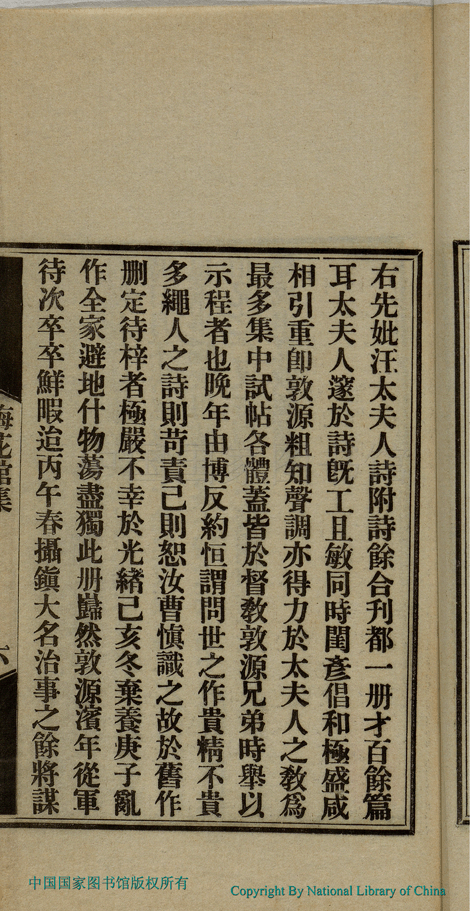 右先妣汪太夫人詩附詩餘合刊都一册才百餘篇
耳太夫人邃於詩旣工且敏同時閨彥倡和極盛咸
相引重卽敦源粗知聲調亦得力於太夫人之敎爲
最多集中試帖各體蓋皆於督敎敦源兄弟時舉以
示程者也晚年由博反約恒謂問世之作貴精不貴
多繩人之詩則苛責己則恕汝曹愼識之故於舊作
删定待梓者極嚴不幸於光緖己亥冬棄養庚子亂
作全家避地什物蕩盡獨此册巋然敦源濱年從軍
待次卒卒鮮暇迨丙午春攝鎭大名治事之餘將謀
梅花館集
六
中国国家图书馆版权所有
Copyright By National Library of China